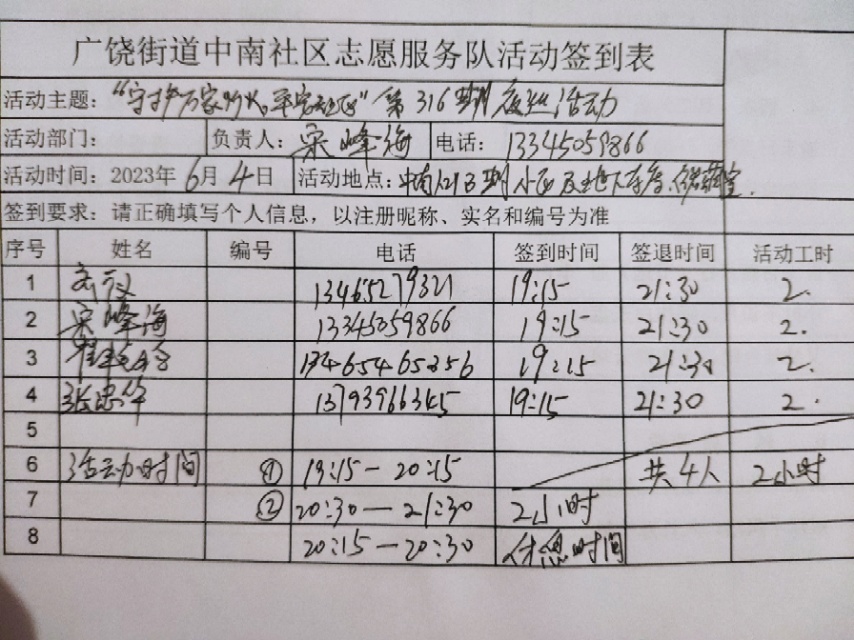 广饶街道中南社区志愿服务队活动签到表
活动主题：“守护万家灯火、平安社区”第316期夜巡活动
活动部门： 负责人：宋峰海 电话：13345059866
活动时间：2023年6月4日 活动地点：中南 期小区及地下车库、储藏室.
签到要求：请正确填写个人信息，以注册昵称、实名和编号为准
序号 姓名 编号 电话 签到时间 签退时间 活动工时
1 13465279321 19:15 21:30 2.
2 宋峰海 13345059866 19:15 21:30 2.
3 13465465256 19:15 21:30 2.
4 张忠华 13793966345 19:15 21:30 2.
5
6 活动时间 ① 19:15－20:15 共4人 2小时
7 ② 20:30－21:30 2小时
8 20:15－20:30 休息时间